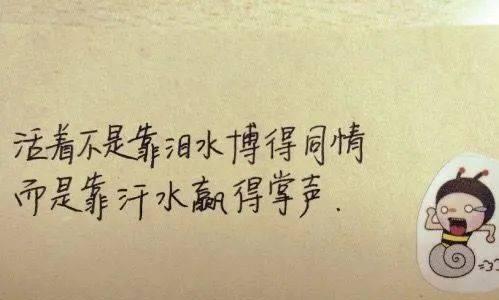 活着不是靠泪水博得同情
而是靠汗水赢得掌声.